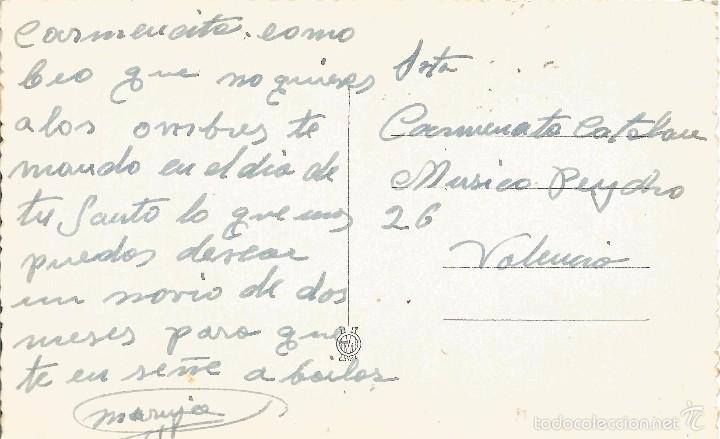 Carmencita. como
beo que no quieres
a los ombres te
mando en el dia de
tu Santo lo que mas
puedas desear
un novio de dos
meses para que
te en señe a bailar
maruja
Srta
Carmencita Catalan
Musico Peydro
26
Valencia
todocoleccion.net